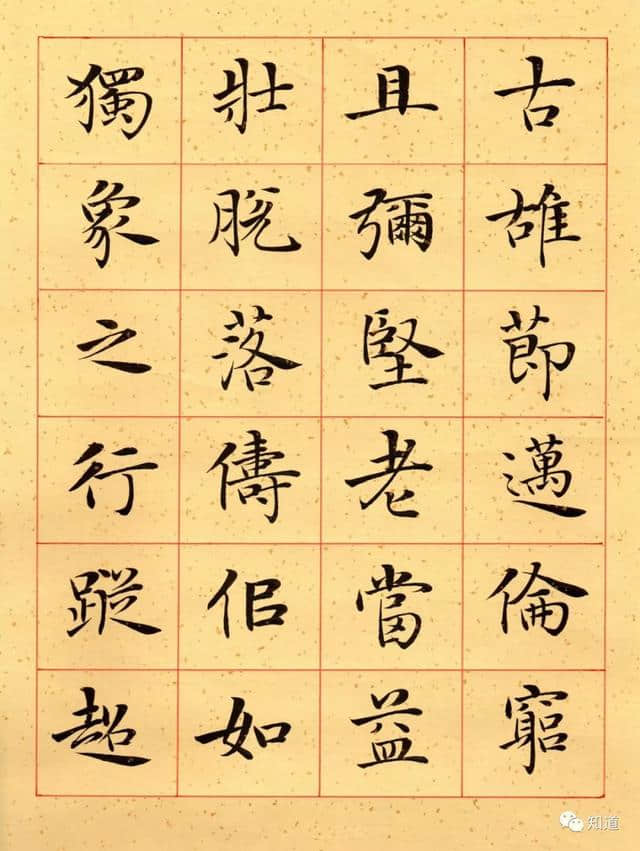 古雄節邁倫窮
且彌堅老當益
壯脫落儔侶如
獨象之行蹤超
知道